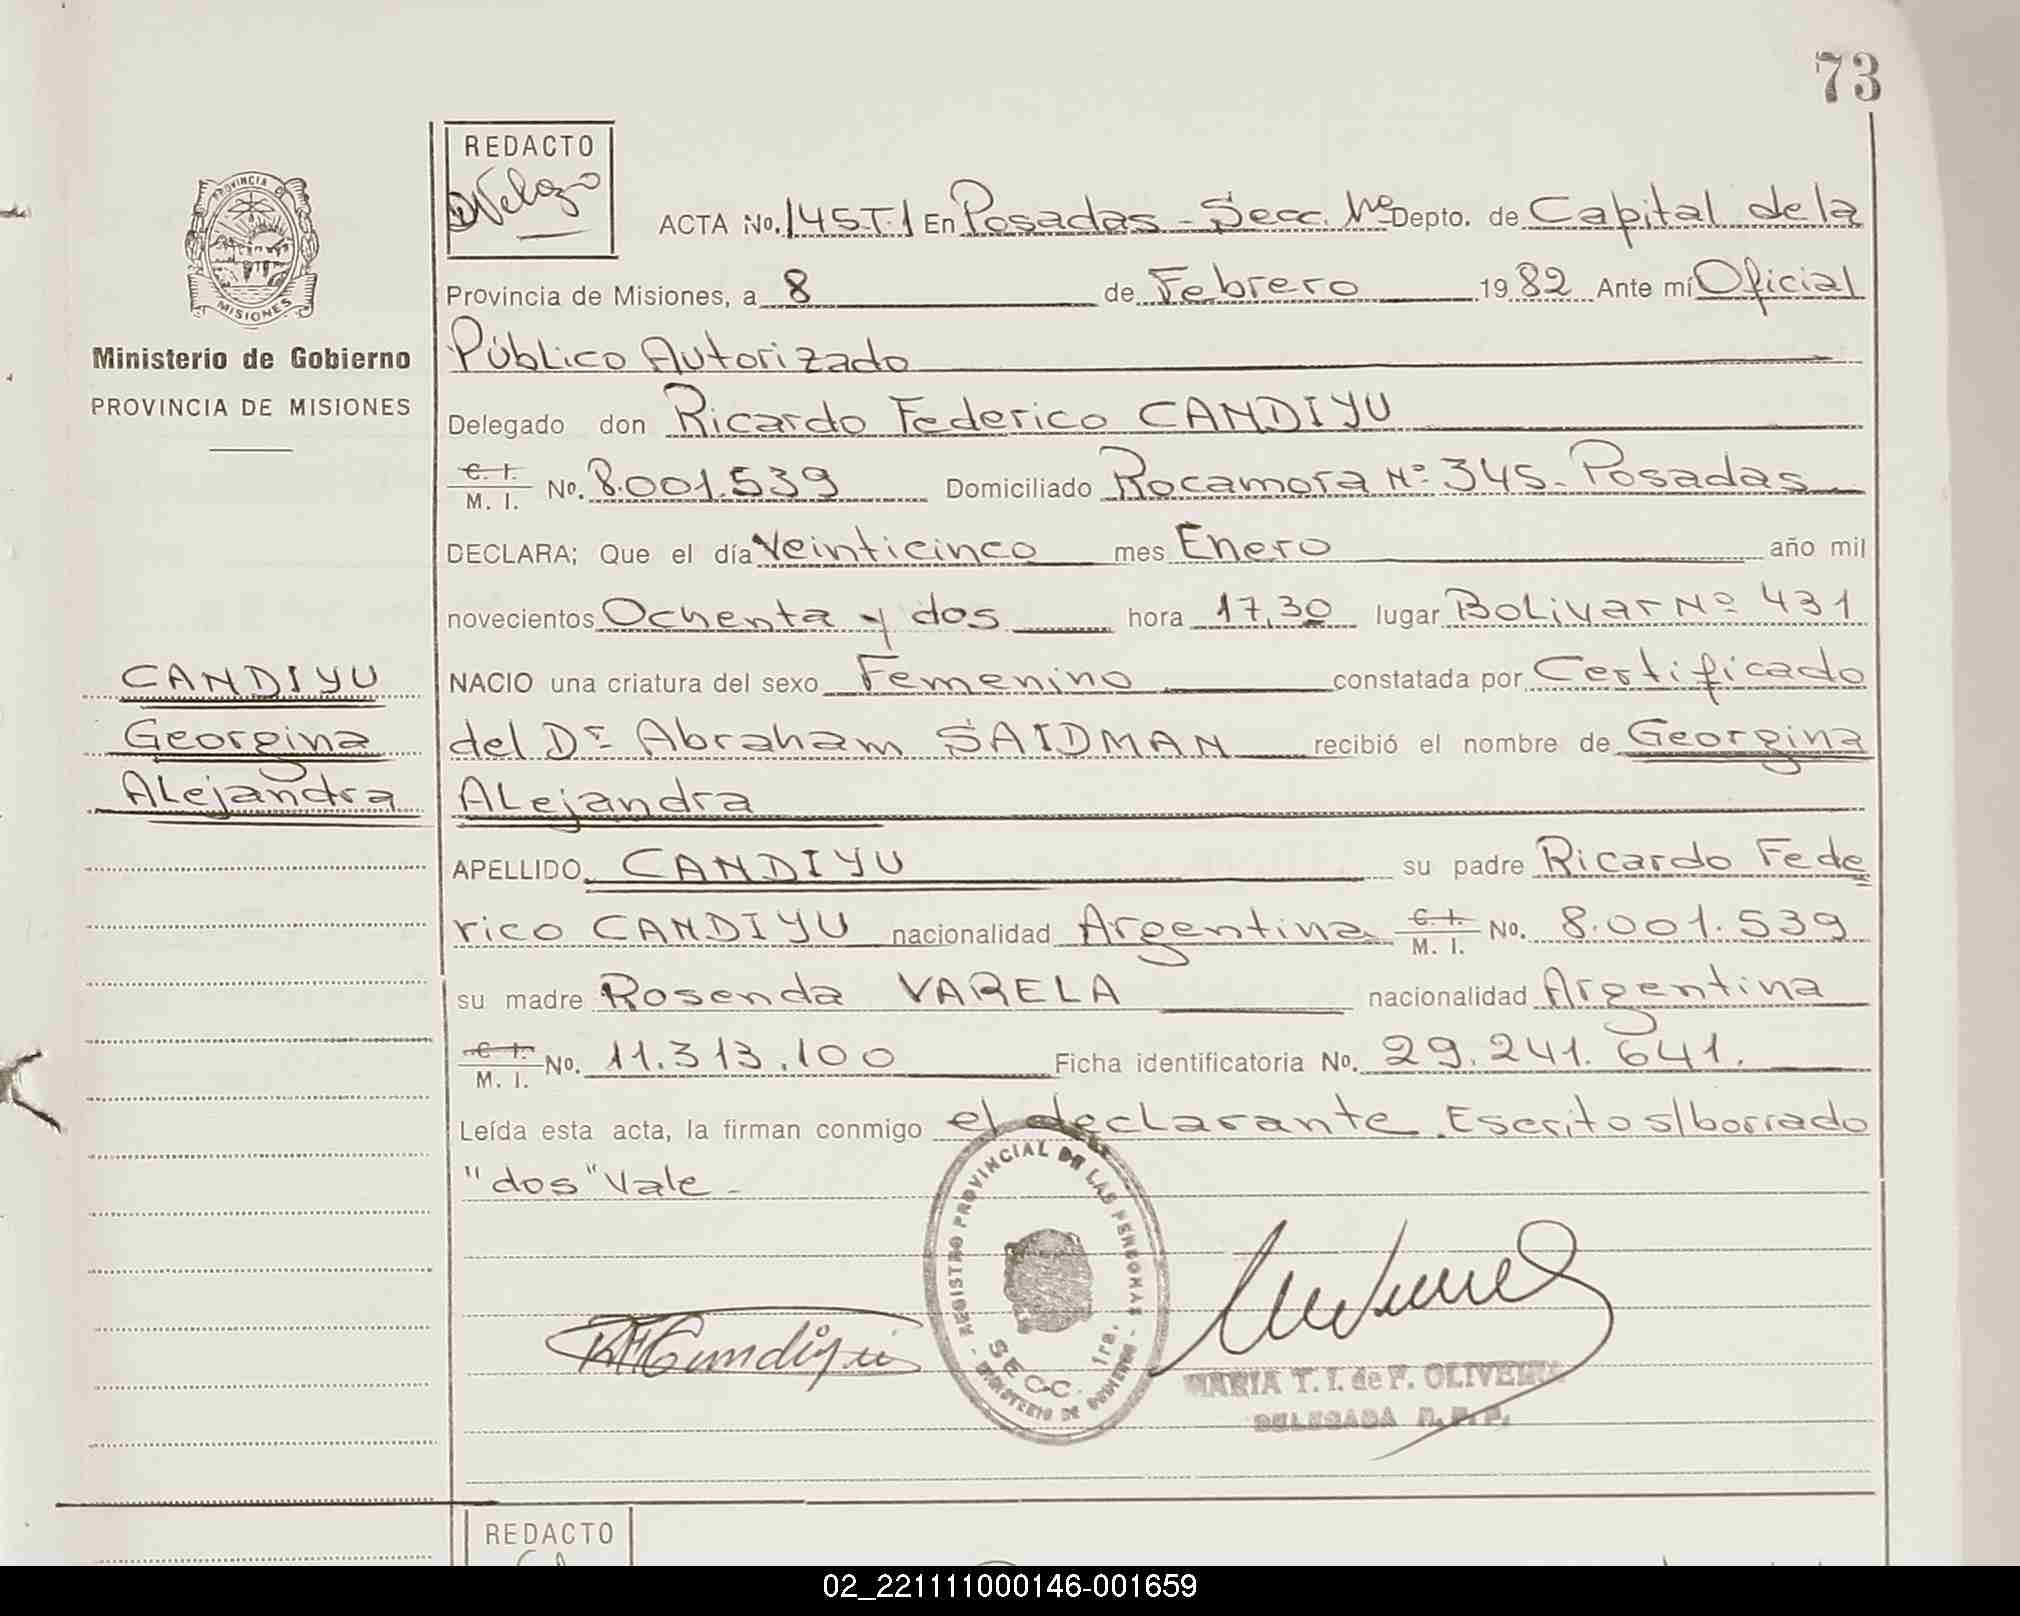 73
REDACTO
PROVINCIA DE
MISIONES
Ministerio de Gobierno
PROVINCIA DE MISIONES
ACTA No. 145T.1 En Posadas - Secc. Depto. de Capital de la
Provincia de Misiones, a 8 de Febrero 1982 Ante mí Oficial
Público Autorizado
Delegado don Ricardo Federico CANDIYU
C. I. M. I. No. 8.001.539 Domiciliado Rocamora Nº 345 - Posadas
DECLARA; Que el día Veinticinco mes Enero año mil
novecientos Ochenta y dos hora 17,30 lugar Bolivar Nº 431
CANDIYU
Georgina
Alejandra
NACIO una criatura del sexo Femenino constatada por Certificado
del Dr Abraham SAIDMAN recibió el nombre de Georgina
Alejandra
APELLIDO CANDIYU su padre Ricardo Fede
rico CANDIYU nacionalidad Argentina C. I. M. I. No. 8.001.539
su madre Rosenda VARELA nacionalidad Argentina
C. I. M. I. No. 11.313.100 Ficha identificatoria No. 29.241.641.
Leída esta acta, la firman conmigo el declarante. Escrito s/borrado
"dos" Vale -
REGISTRO PROVINCIAL DE LAS PERSONAS - MINISTERIO DE GOBIERNO -
SECC. 1ra.
MARIA T. I. de F. OLIVEIRA
DELEGADA R. P. P.
REDACTO
02_221111000146-001659